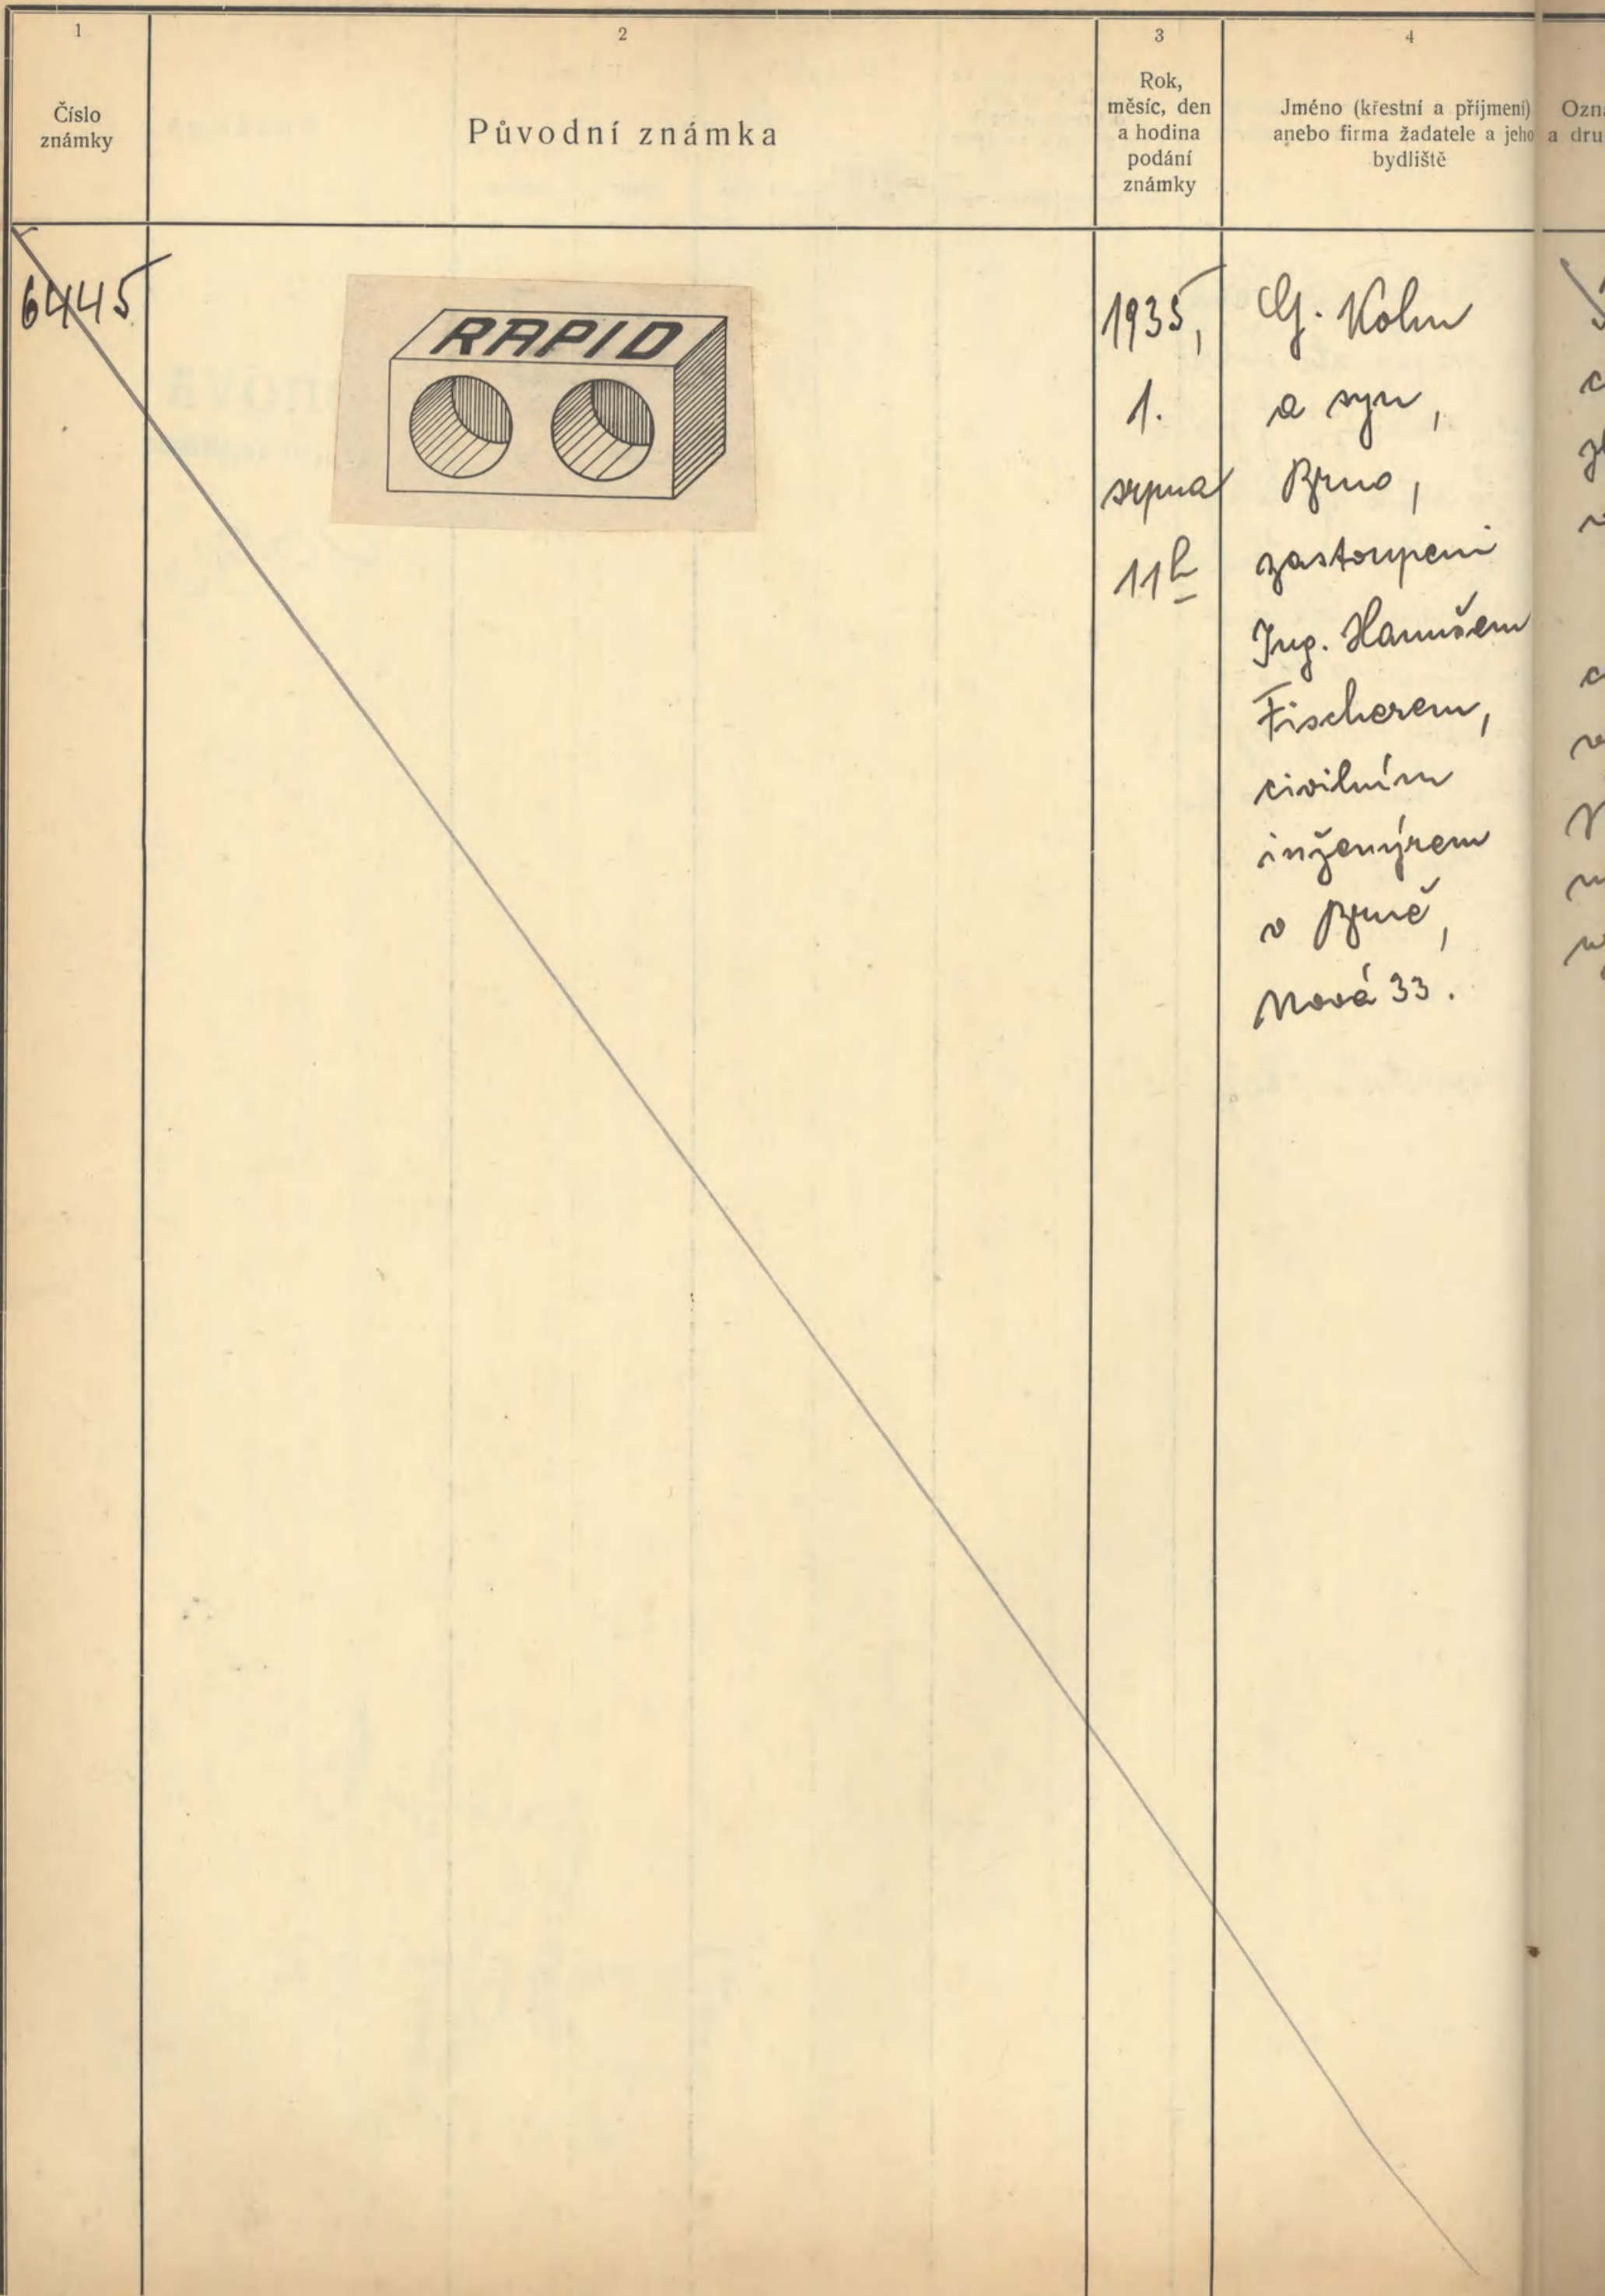 1
Číslo
známky
2
Původní známka
3
Rok,
měsíc, den
a hodina
podání
známky
4
Jméno (křestní a příjmení)
anebo firma žadatele a jeho
bydliště
6445
RAPID
1935,
1.
srpna
11h
G. Kohn
a syn,
Brno,
zastoupeni
Ing. Hanušem
Fischerem,
civilním
inženýrem
v Brně,
Nová 33.